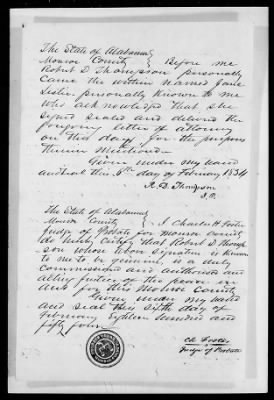 The State of Alabama
Monroe County } Before me
Robert D Thompson personally
came the within named Jane
personally known to me
who acknowledged that she
signed sealed and delivered the
foregoing letter of attorney
on this day for the purposes
therein mentioned
Given under my hand
and seal this 6th day of February 1854
R. D. Thompson
J. P.
The State of Alabama
Monroe County } I Charles H Foster
Judge of Probate for Monroe County
do hereby certify that Robert D Thomp
son whose above signature is known
to me to be genuine, is a duly
commissioned and authorised and
acting Justice of the peace in
and for the Monroe County
Given under my hand
and seal this sixth day of
February Eighteen hundred and
fifty four
Foster
Judge of Probate